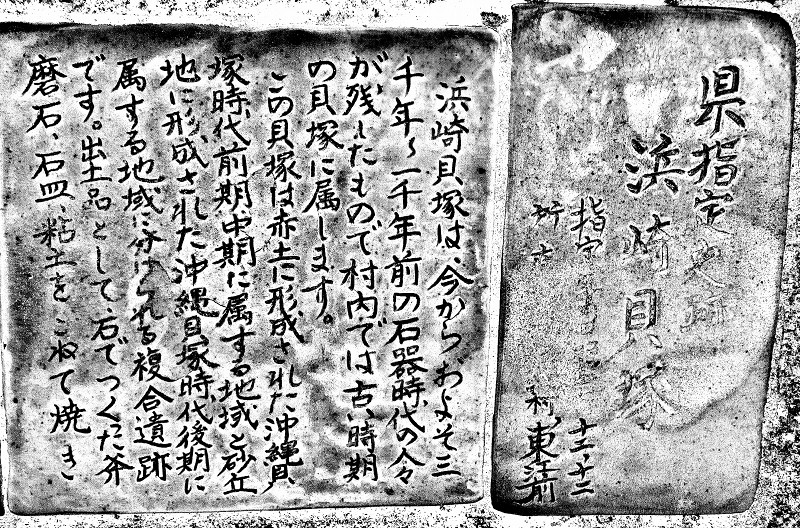 県指定史跡
浜崎貝塚
指定
所在
利東江前
浜崎貝塚は、今からおよそ三
千年〜二千年前の石器時代の人々
が、残したもので村内では古い時期
の貝塚に属します。
この貝塚は赤土に形成された沖縄貝
塚時代前期中期に属する地域と砂丘
地に形成された沖縄貝塚時代後期に
属する地域に分けられる複合遺跡
です。出土品として、石でつくた斧
磨石、石皿、粘土をこねて焼き